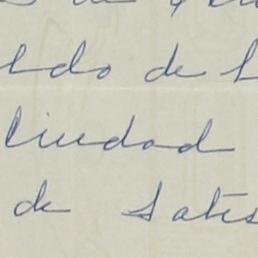 ldo de l
Ciudad
de satis